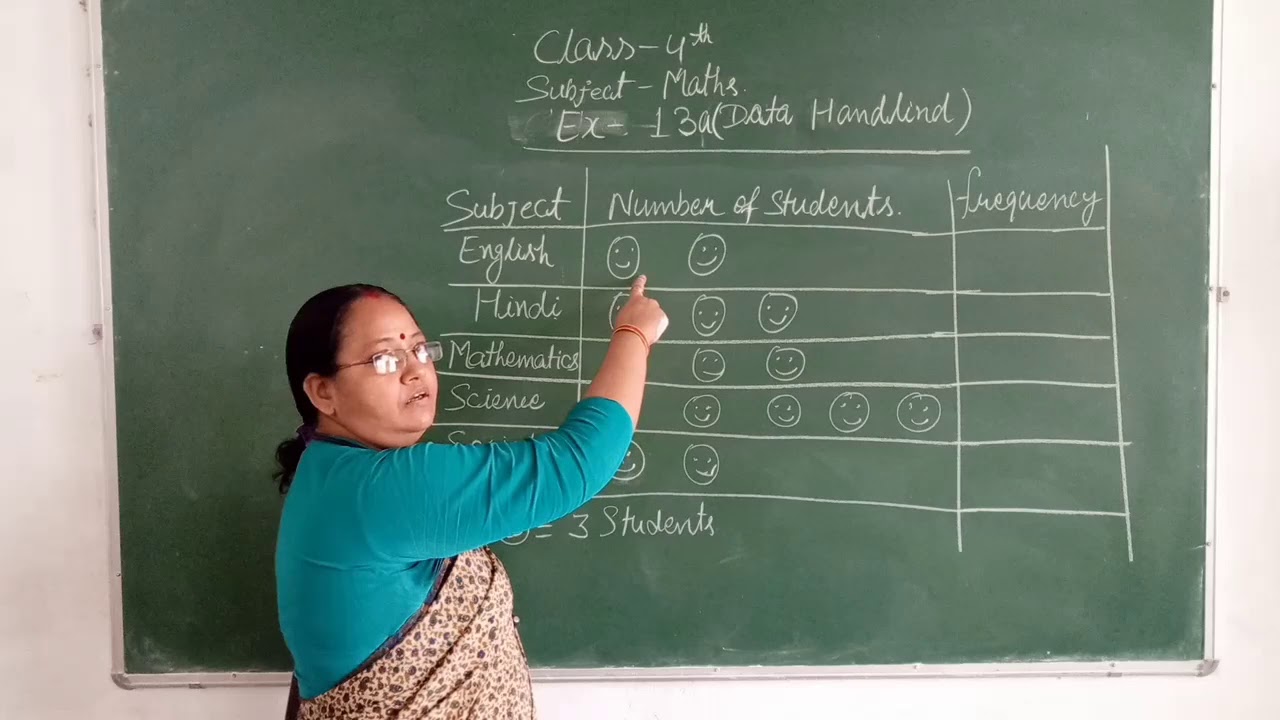 Class-4th
Subject-Maths.
Ex-13a(Data Handlind)
Subject Number of Students. frequency
English
Hindi
Mathematics
Science
= 3 Students